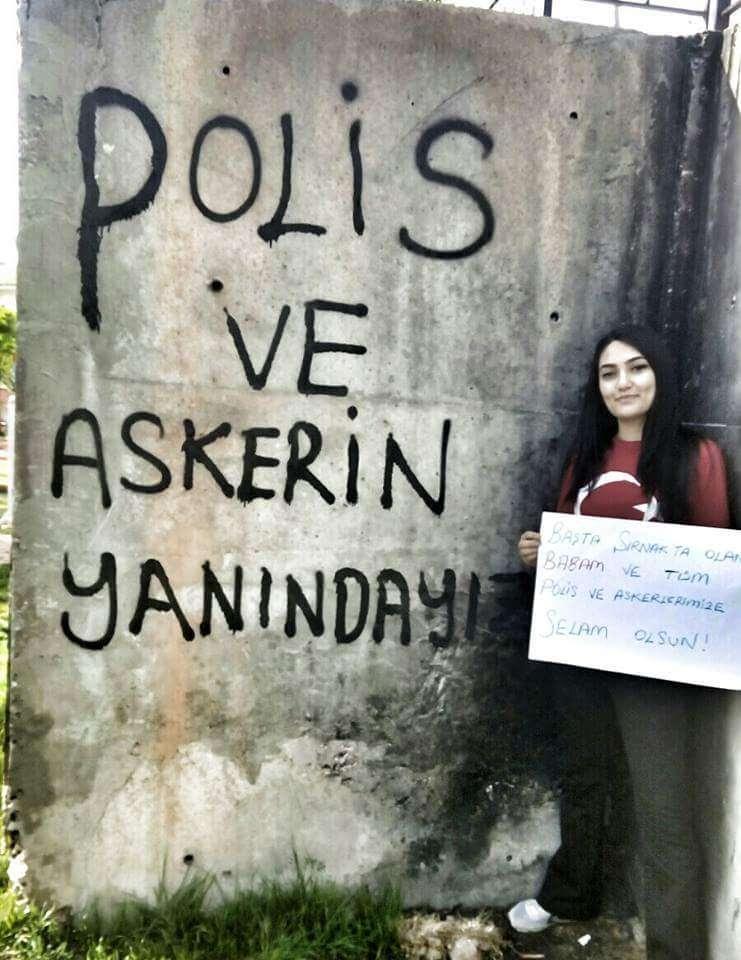 POLİS
VE
ASKERİN
YANINDAYIZ
BAŞTA ŞIRNAK TA OLAN
BABAM VE TÜM
POLİS VE ASKERLERİMİZE
SELAM OLSUN!